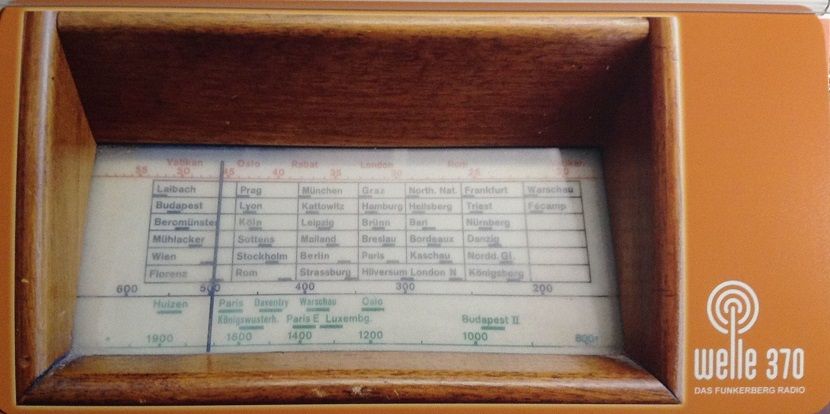 Vatikan Oslo Rabat London Rom
55 50 45 40 35 30 25 20
Laibach Prag München Graz North. Nat. Frankfurt Warschau
Budapest Lyon Kattowitz Hamburg Heilsberg Triest Fécamp
Beromünster Köln Leipzig Brünn Bari Nürnberg
Mühlacker Sottens Mailand Breslau Bordeaux Danzig
Wien Stockholm Berlin Paris Kaschau Nordd. Gl.
Florenz Rom Strassburg Hilversum London N Königsberg
600 500 400 300 200
Huizen Paris Daventry Warschau Oslo
Königswusterh. Paris E Luxembg. Budapest II
1900 1600 1400 1200 1000 800
welle 370
DAS FUNKERBERG RADIO